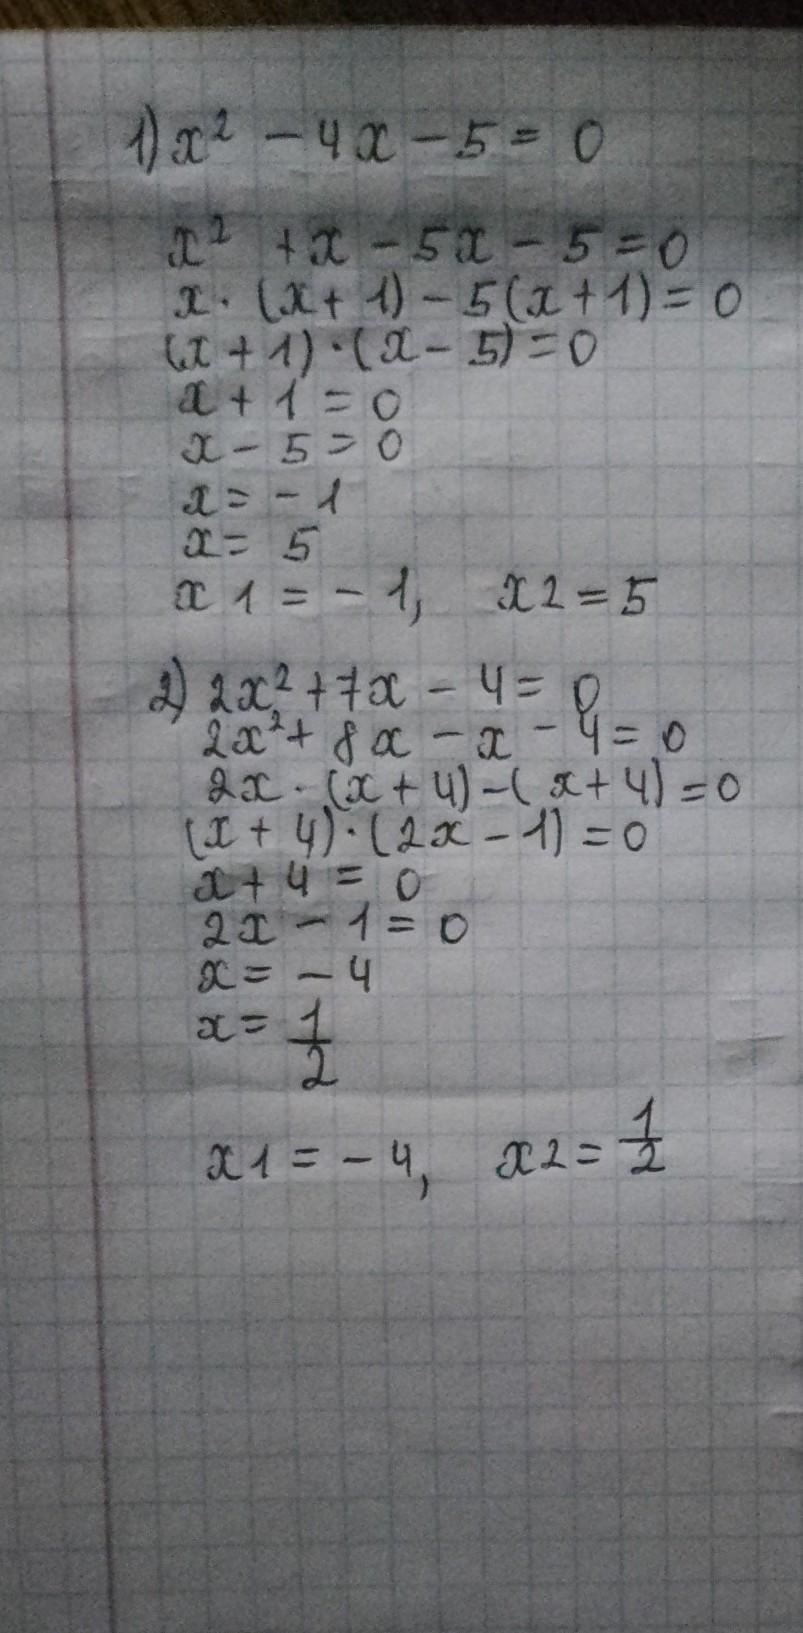 1) x² - 4x - 5 = 0
x² + x - 5x - 5 = 0
x · (x + 1) - 5(x + 1) = 0
(x + 1) · (x - 5) = 0
x + 1 = 0
x - 5 = 0
x = - 1
x = 5
x1 = - 1, x2 = 5
2) 2x² + 7x - 4 = 0
2x² + 8x - x - 4 = 0
2x · (x + 4) - (x + 4) = 0
(x + 4) · (2x - 1) = 0
x + 4 = 0
2x - 1 = 0
x = - 4
x = 1/2
x1 = - 4, x2 = 1/2